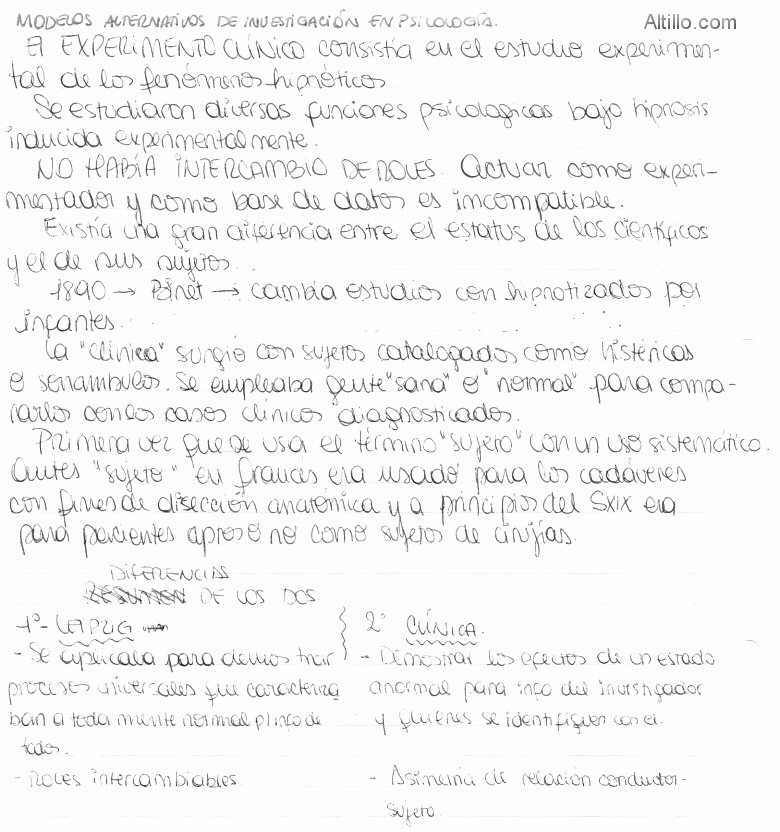 MODELOS ALTERNATIVOS DE INVESTIGACIÓN EN PSICOLOGÍA.
Altillo.com
El EXPERIMENTO CLÍNICO consistía en el estudio experimen-
tal de los fenómenos hipnóticos
Se estudiaron diversas funciones psicologicas bajo hipnosis
inducida experimentalmente.
NO HABÍA INTERCAMBIO DE ROLES. Actuar como experi-
mentador y como base de datos es incompatible.
Existía una gran diferencia entre el estatus de los científicos
y el de sus sujetos.
1890 → Binet → cambia estudios con hipnotizados por
infantes.
La "clínica" surgió con sujetos catalogados como histéricas
o sonambulos. Se empleaba gente "sana" o "normal" para compa-
rarlos con los casos clínicos diagnosticados.
Primera vez que se usa el término "sujeto" con un uso sistemático.
Antes "sujeto" en frances era usado para los cadáveres
con fines de disección anatómica y a principios del SXIX era
para pacientes aptos o no como sujetos de cirujías.
DIFERENCIAS
RESUMEN DE LOS DOS
1º- LEIPZIG
2º CLÍNICA.
- Se aplicaba para demostrar
procesos universales que caracteriza
ban a toda mente normal p/ info de
todos.
- Roles intercambiables
- Demostrar los efectos de un estado
anormal para info del investigador
y quienes se identifiquen con el.
- Asimetría de relación conductor-
sujeto